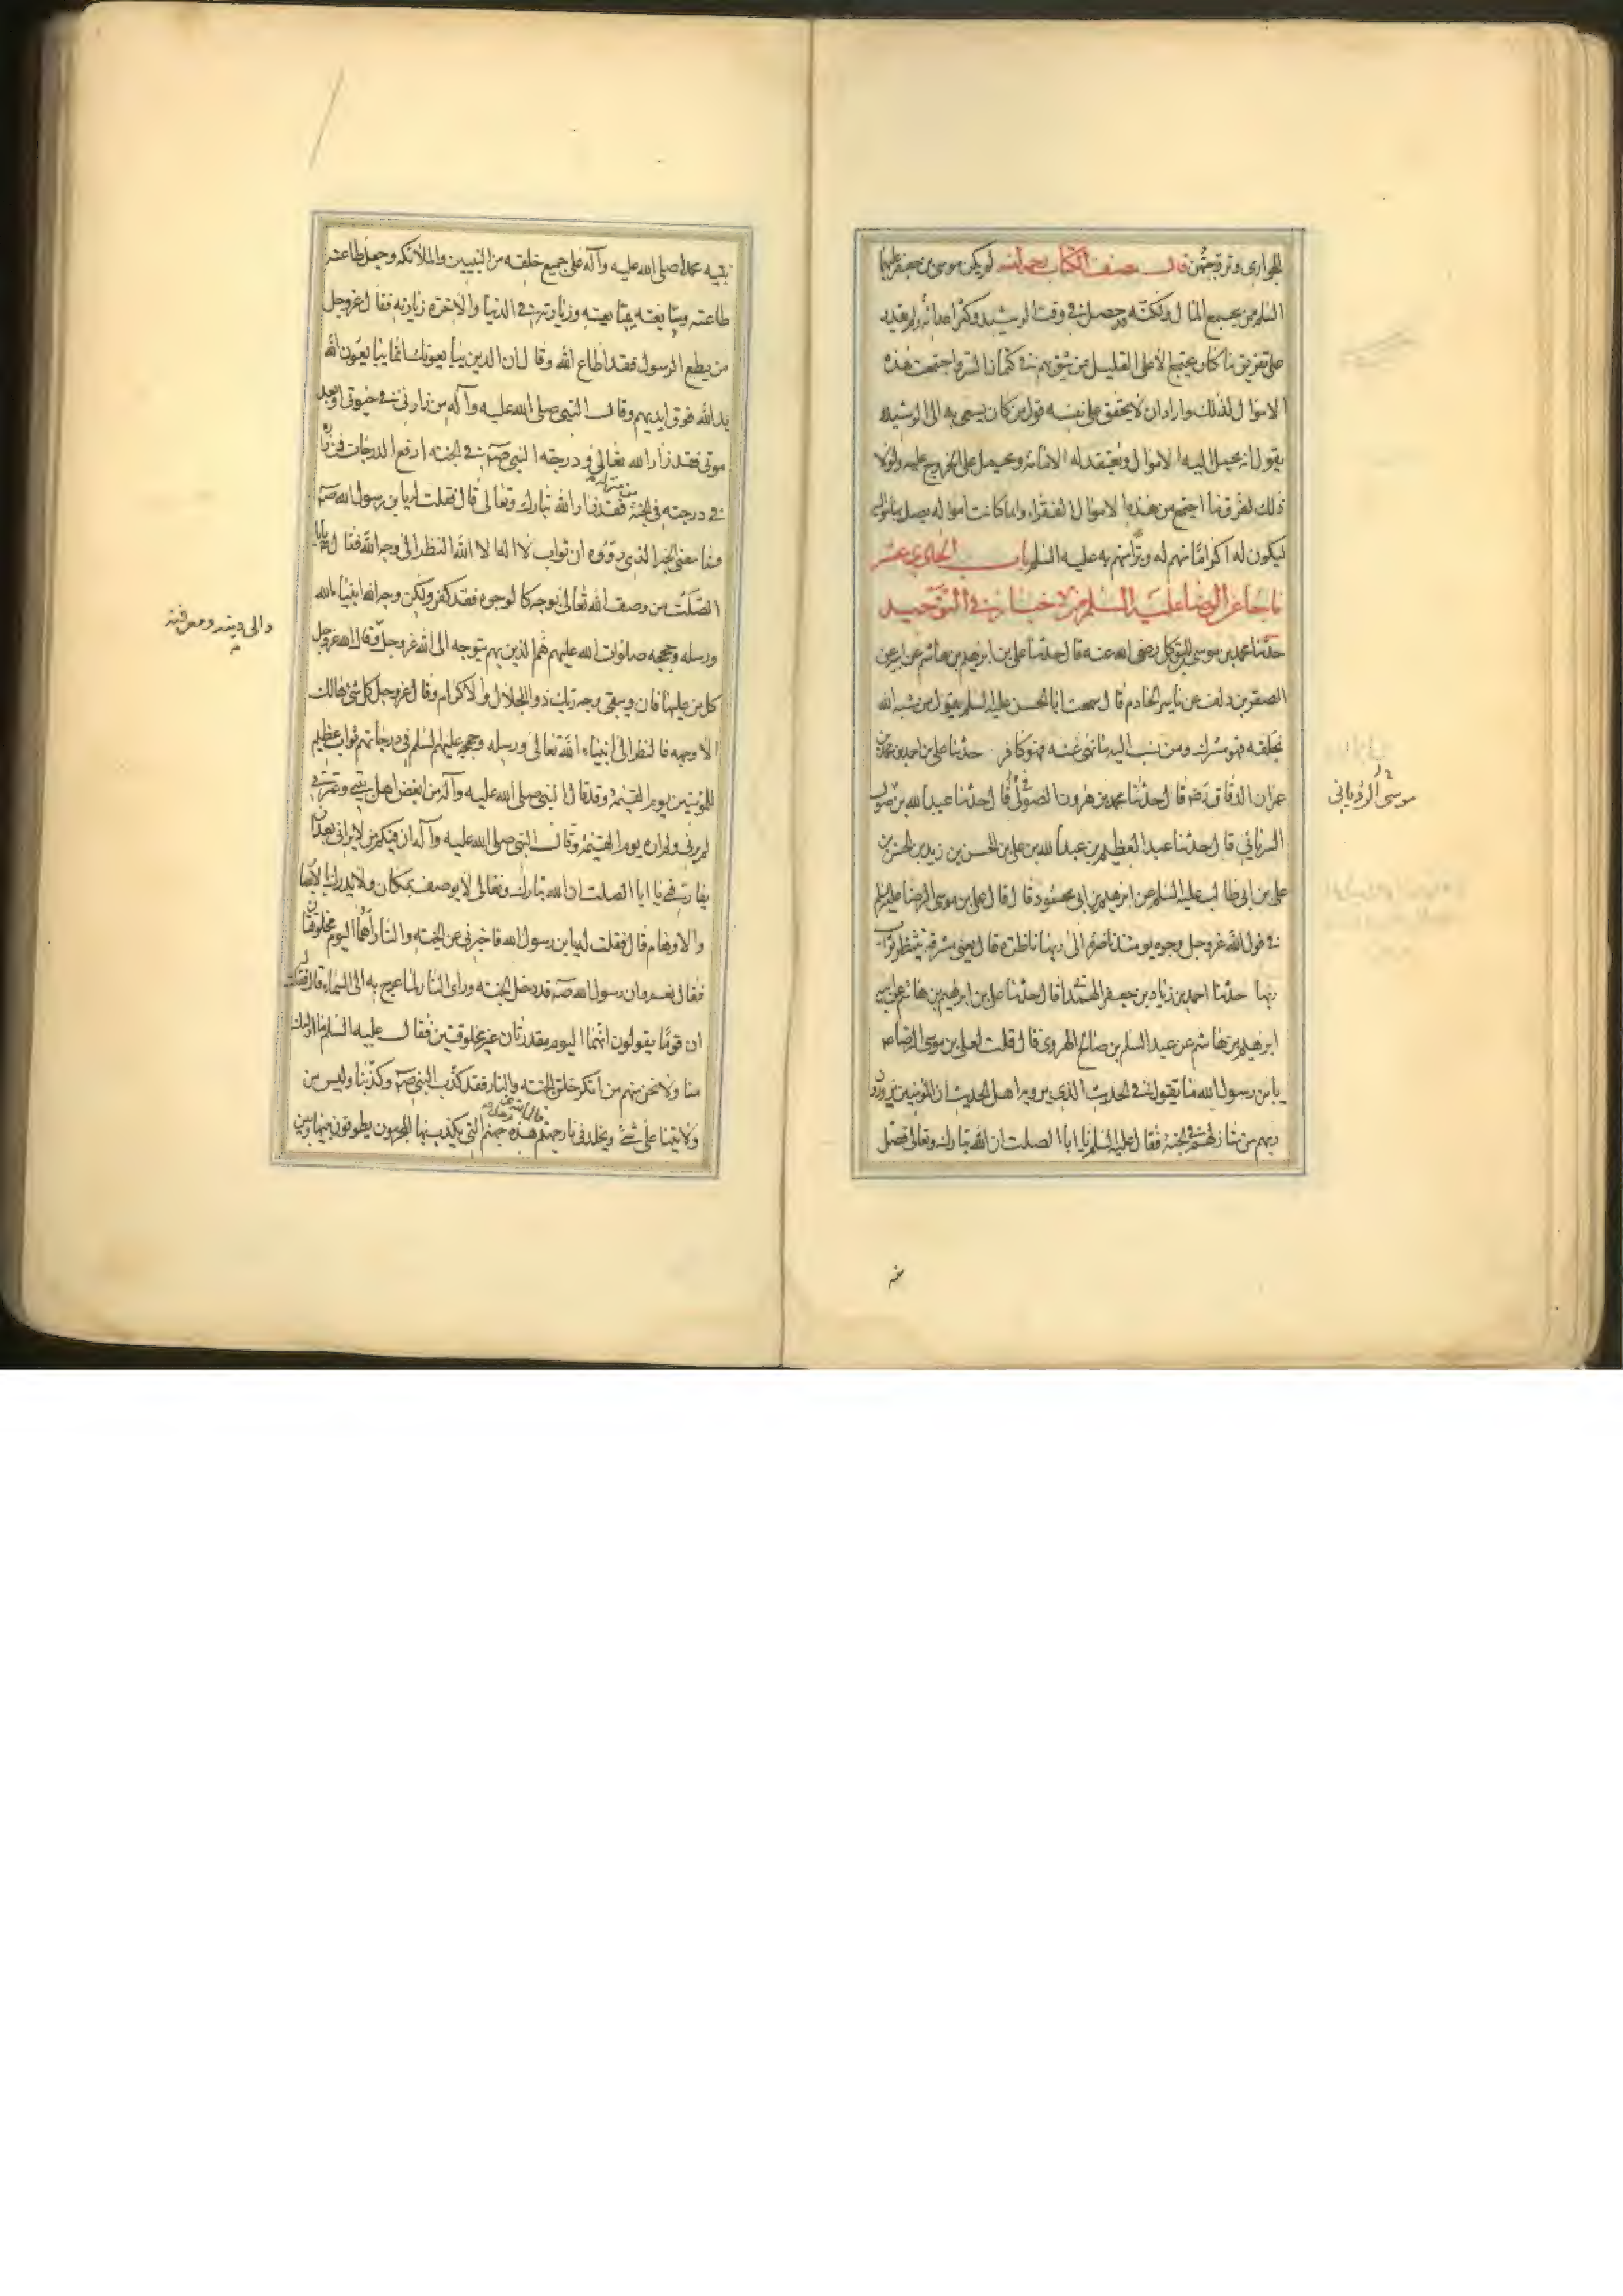 الجواري وتزوجتهن قال مصنف الكتاب رحمه الله لم يكن موسى بن جعفر عليهما
السلم من يجمع المال ولكنه حصل في وقت الرشيد وكثر اعدائه ولم يقدر
على تفريق ما كان يجتمع الا على القليل من يثق بهم في كتمان السر فاجتمعت هذه
الاموال لذلك واراد ان لا يحقق على نفسه قول من كان يسعى به الى الرشيد
يقول انه يحمل اليه الاموال ويعتقد له الامامة ويحمل على الخروج عليه ولولا
ذلك لفرق ما اجتمع من هذه الاموال الفقراء وانما كانت اموال له يصل بها مواليه
ليكون له اكراما منهم له وبرا منهم به عليه السلم باب الحادي عشر
ما جاء عن الرضا عليه السلم من الاخبار في التوحيد
حدثنا محمد بن موسى المتوكل رضي الله عنه قال حدثنا علي بن ابرهيم بن هاشم عن ابيه عن
الصقر بن دلف عن ياسر الخادم قال سمعت ابا الحسن عليه السلم يقول من شبه الله
بخلقه فهو مشرك ومن نسب اليه ما نهى عنه فهو كافر حدثنا علي بن احمد بن محمد بن
عمران الدقاق رضه قال حدثنا محمد بن هرون الصوفي قال حدثنا عبيد الله بن موسى
الرياني قال حدثنا عبد العظيم بن عبد الله بن علي بن الحسن بن زيد بن الحسن بن
علي بن ابي طالب عليه السلم عن ابرهيم بن ابي محمود قال قال علي بن موسى الرضا عليه السلم
في قول الله عز وجل وجوه يومئذ ناضرة الى ربها ناظرة قال يعني مشرقة ينتظر ثواب
ربها حدثنا احمد بن زياد بن جعفر الهمداني قال حدثنا علي بن ابرهيم بن هاشم عن ابيه
ابرهيم بن هاشم عن عبد السلم بن صالح الهروي قال قلت لعلي بن موسى الرضا ع
يا بن رسول الله ما تقول في الحديث الذي يرويه اهل الحديث ان المؤمنين يزورون
ربهم من منازلهم في الجنة فقال عليه السلم يا ابا الصلت ان الله تبارك وتعالى فضل
موسى الروياني
نبيه محمدا صلى الله عليه وآله على جميع خلقه من النبيين والملائكة وجعل طاعته
طاعته ومبايعته مبايعته وزيارته في الدنيا والاخرة زيارته فقال عز وجل
من يطع الرسول فقد اطاع الله وقال ان الذين يبايعونك انما يبايعون الله
يد الله فوق ايديهم وقال النبي صلى الله عليه وآله من زارني في حيوتي او بعد
موتي فقد زار الله تعالى ودرجته النبي صم في الجنة ارفع الدرجات فمن زاره
في درجته في الجنة من منزله فقد زار الله تبارك وتعالى قال فقلت له يا بن رسول الله صم
فما معنى الخبر الذي رووه ان ثواب لا اله الا الله النظر الى وجه الله فقال ع يا ابا
الصلت من وصف الله تعالى بوجه كالوجوه فقد كفر ولكن وجه الله انبياء الله
ورسله وحججه صلوات الله عليهم هم الذين بهم يتوجه الى الله عز وجل وقال الله عز وجل
كل من عليها فان ويبقى وجه ربك ذو الجلال والاكرام وقال عز وجل كل شيء هالك
الا وجهه فالنظر الى انبياء الله تعالى ورسله وحججه عليهم السلم في درجاتهم ثواب عظيم
للمؤمنين يوم القيمة وقد قال النبي صلى الله عليه وآله من ابغض اهل بيتي وعترتي
لم يرني ولم اره يوم القيمة وقال النبي صلى الله عليه وآله ان فيكم من لا يراني بعد ان
يفارقني يا ابا الصلت ان الله تبارك وتعالى لا يوصف بمكان ولا يدرك بالابصار
والاوهام قال فقلت له يا بن رسول الله فاخبرني عن الجنة والنار اهما اليوم مخلوقتان
فقال نعم وان رسول الله صم قد دخل الجنة وراى النار لما عرج به الى السماء قال فقلت له
ان قوما يقولون انهما اليوم مقدرتان غير مخلوقتين فقال عليه السلم ما اولئك
منا ولا نحن منهم من انكر خلق الجنة والنار فقد كذب النبي صم وكذبنا وليس من
ولايتنا على شيء ويخلد في نار جهنم قال الله عز وجل هذه جهنم التي يكذب بها المجرمون يطوفون بينها وبين
والى دينه ومعرفته